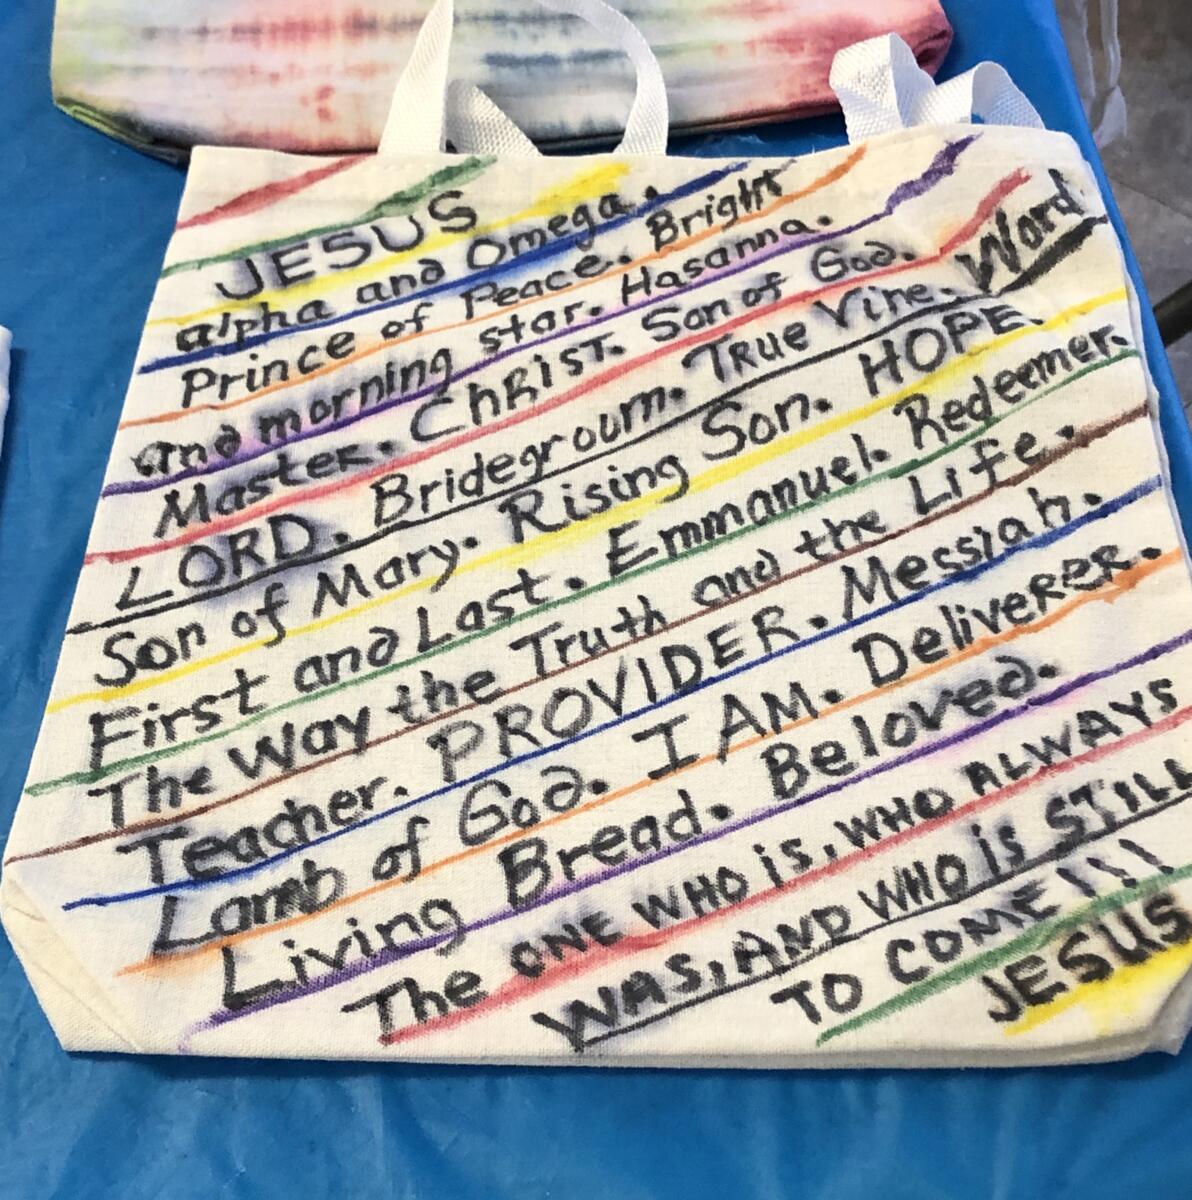 JESUS
alpha and Omega.
Prince of Peace. Bright
and morning star. Hasanna.
Master. ChRIST. Son of God. Word
LORD. Bridegroum. TRUE Vine.
Son of Mary. Rising Son. HOPE.
First and Last. Emmanuel. Redeemer.
The Way the Truth and the Life.
Teacher. PROVIDER. Messiah.
Lamb of God. I AM. Deliverer.
Living Bread. Beloved.
The ONE WHO is, WHO ALWAYS
WAS, AND WHO is STILL
TO COME!!!
JESUS